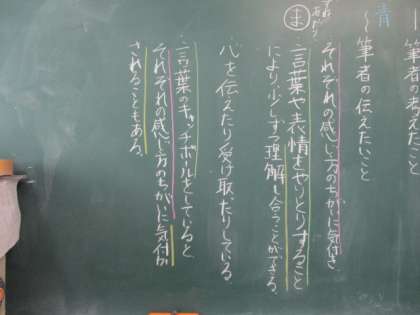 〜筆者の考えたこと
青
〜筆者の伝えたいこと
それぞれの感じ方のちがいに気付き、
ま
言葉や表情をやりとりすること
により、少しずつ理解し合うことができる。
心を伝えたり受け取ったりしている。
言葉のキャッチボールをしていると
それぞれの感じ方のちがいに気付か
されることもある。